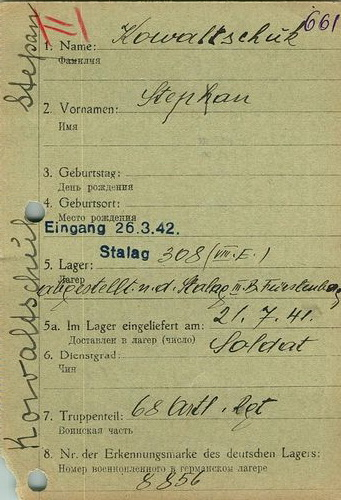 Kowaltschuk Stepan
III
661
1. Name: Kowaltschuk
Фамилия
2. Vornamen: Stephan
Имя
3. Geburtstag:
День рождения
4. Geburtsort:
Место рождения
Eingang 26.3.42.
Stalag 308 (VIII. E.)
5. Lager:
Лагерь
abgestellt n. d. Stalag II B Fürstenberg
5a. Im Lager eingeliefert am: 21. 7. 41.
Доставлен в лагерь (число)
6. Dienstgrad: Soldat
Чин
7. Truppenteil: 68 Artl. Rgt
Воинская часть
8. Nr. der Erkennungsmarke des deutschen Lagers:
Номер военнопленного в германском лагере
8856